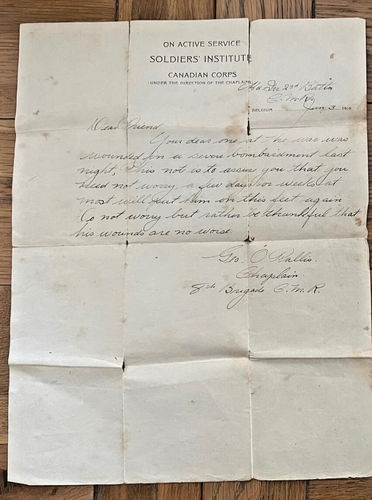 ON ACTIVE SERVICE
SOLDIERS' INSTITUTE
CANADIAN CORPS
(UNDER THE DIRECTION OF THE CHAPLAIN
C.M.R.
BELGIUM
Dear Friend,
Your dear one at the war was
wounded in a severe bombardment last
night. This not is to assure you that you
need not worry, a few days or weeks at
most will put him on his feet again
Do not worry but rather be thankful that
his wounds are no worse.
Geo O
Chaplain
8th Brigade C.M.R.